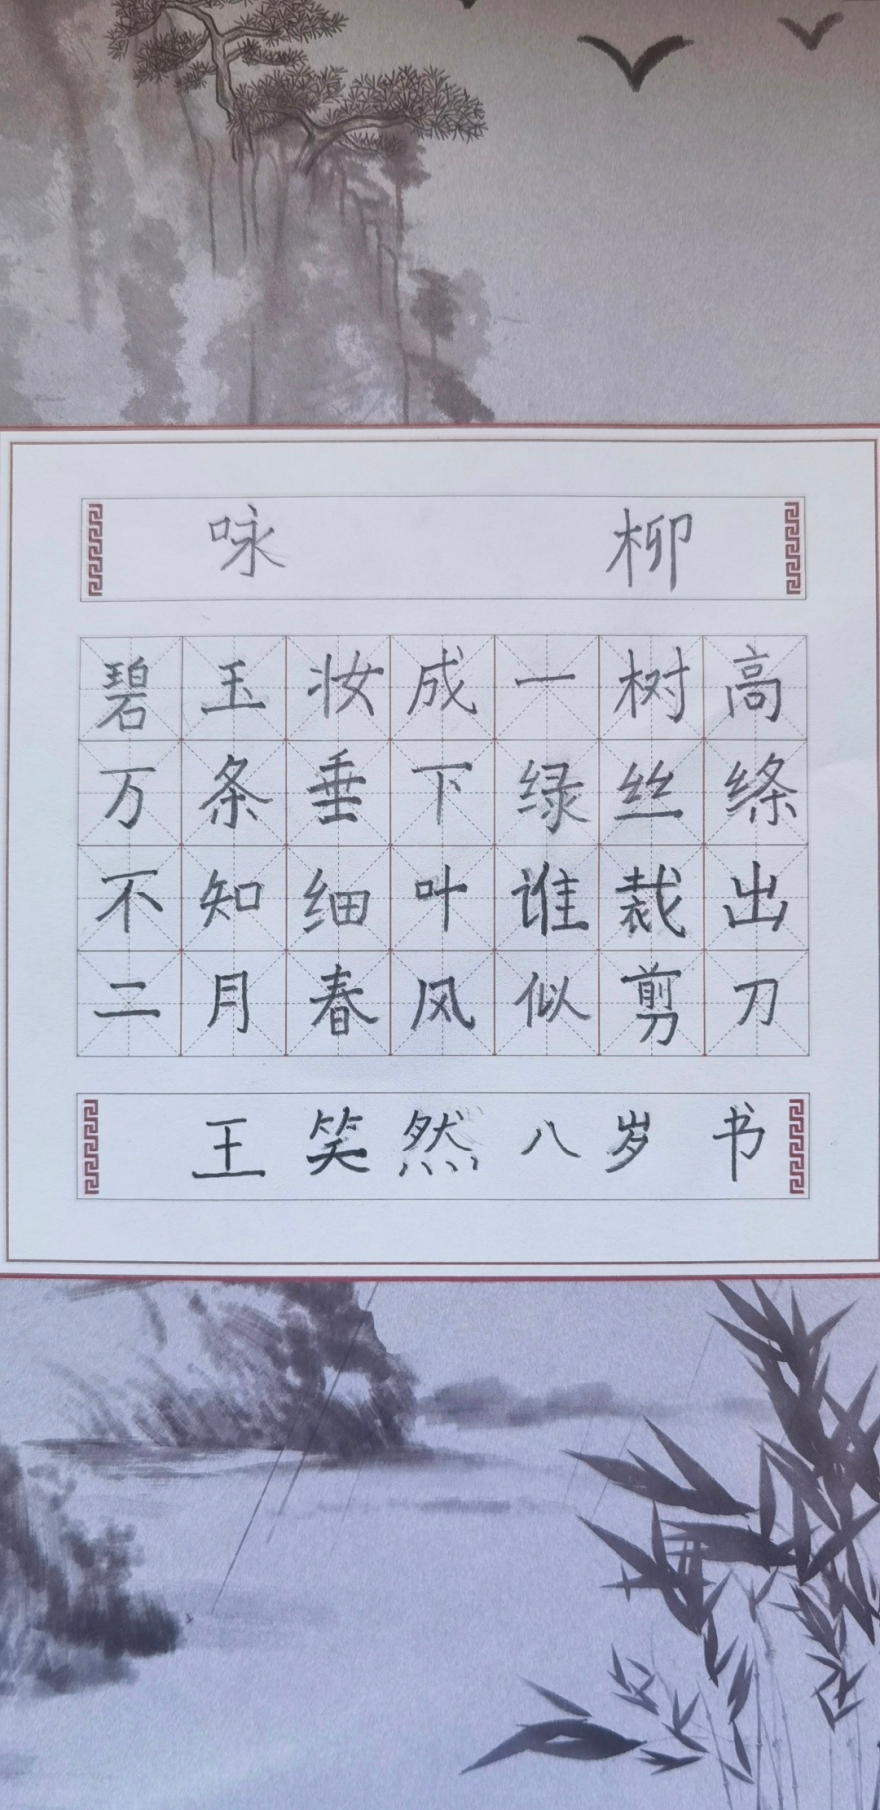 咏柳
碧玉妆成一树高
万条垂下绿丝绦
不知细叶谁裁出
二月春风似剪刀
王笑然八岁书